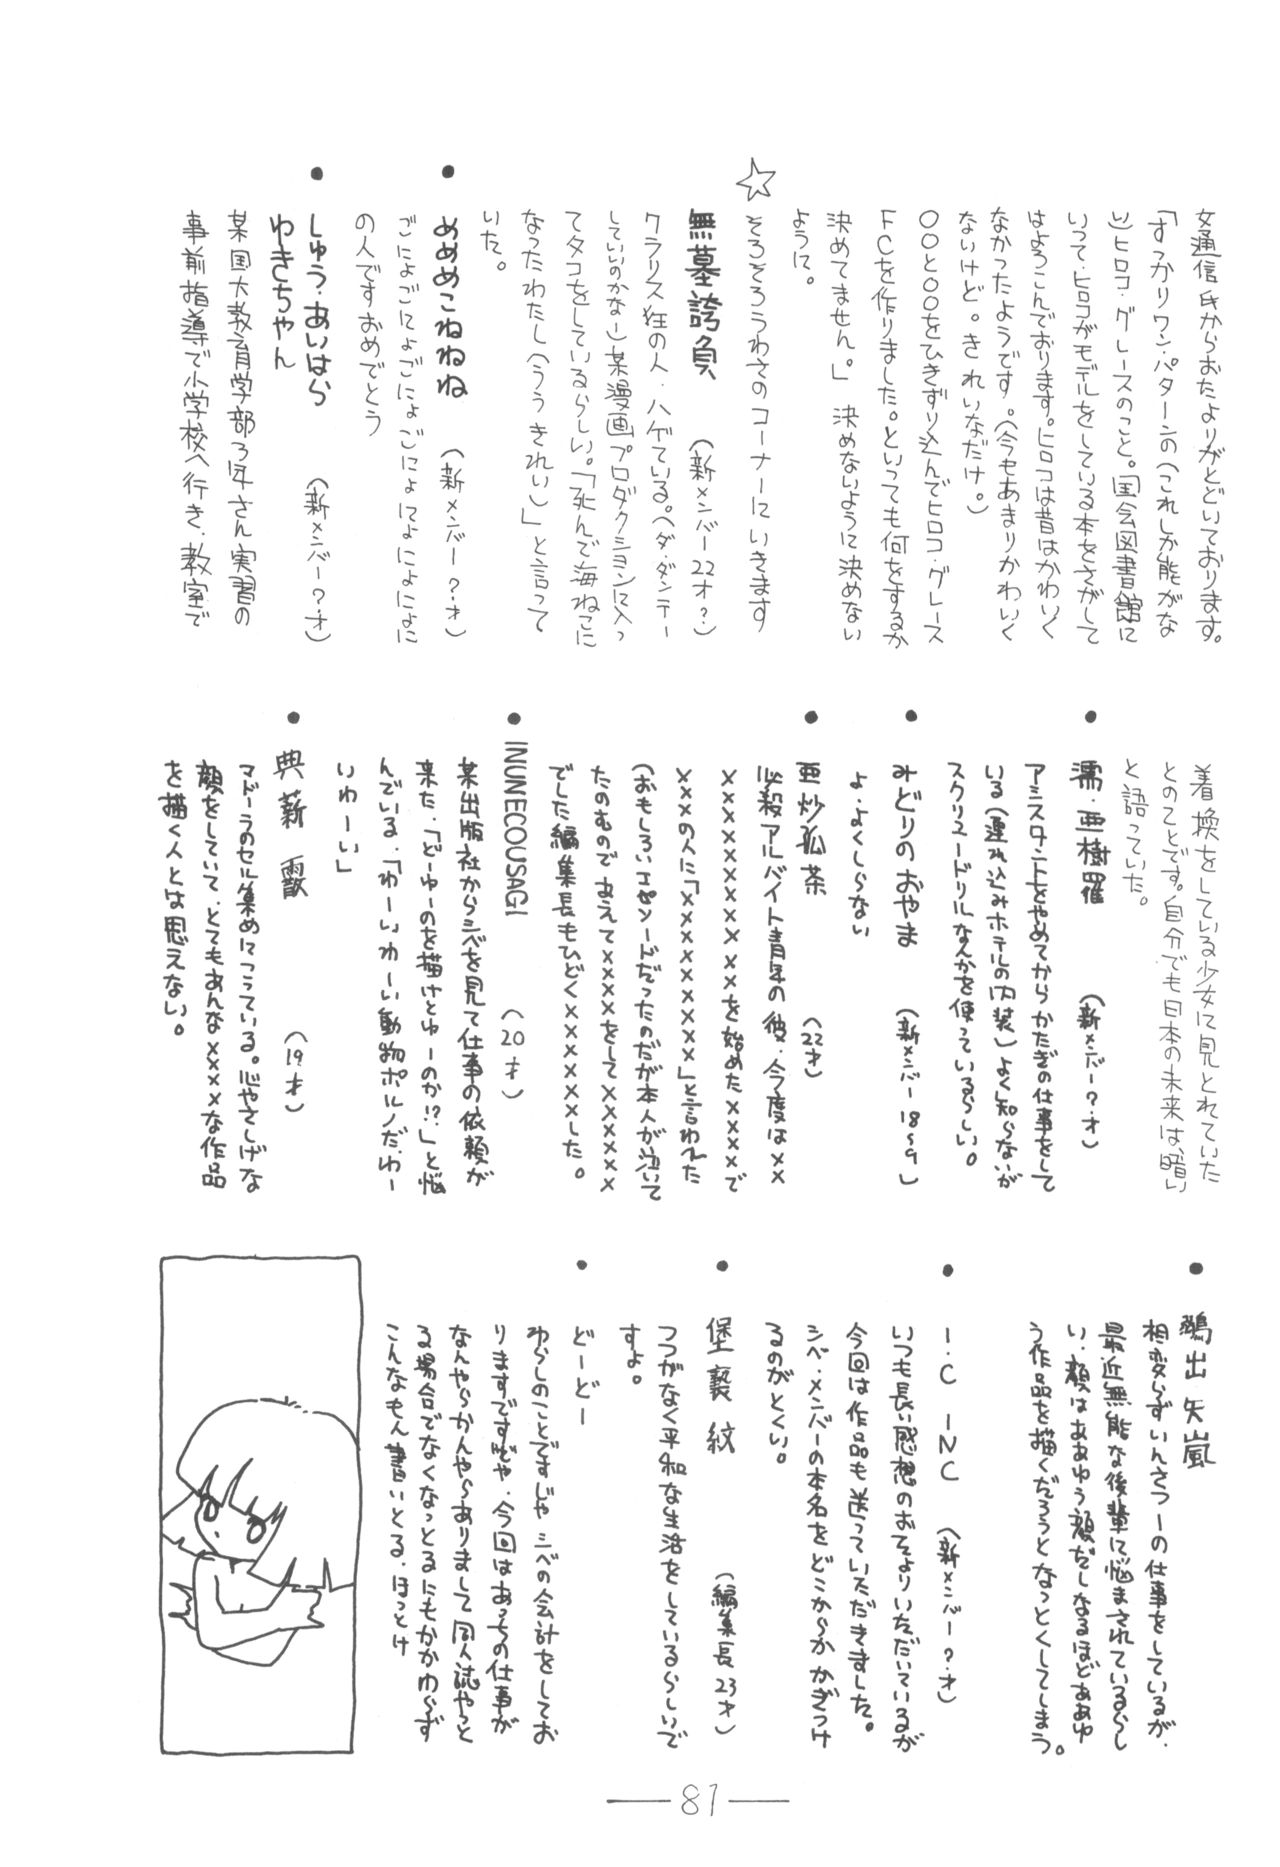 女通信氏からおたよりがとどいております。
「すっかりワンパターンの(これしか能がな
い)ヒロコ・グレースのこと。国会図書館に
いって・ヒロコがモデルをしている本をさがして
はよろこんでおります。ヒロコは昔はかわいく
なかったようです。(今もあまりかわいく
ないけど。きれいなだけ。)
〇〇と〇〇をひきずり込んでヒロコ・グレース
FCを作りました。といっても何をするか
決めてません。」決めないように決めない
ように。
☆ そろそろうわさのコーナーにいきます
無墓誇負 (新メンバー22才?)
クラリス狂の人・ハゲている。(ダ・ダンテー
していいのかなー)某漫画プロダクションに入っ
てタコをしているらしい。「死んで海ねこに
なったわたし(ううきれい)」と言って
いた。
● めめめこねねね (新メンバー?・才)
ごにょごにょごにょごにょにょにょにょに
の人ですおめでとう
● しゅう・あいはら (新メンバー?・才)
わきちゃん
某国大教育学部3年さん実習の
事前指導で小学校へ行き・教室で
着換をしている少女に見とれていた
とのことです。自分でも日本の未来は暗い
と語っていた。
● 濡・亜樹羅 (新メンバー?・才)
アシスタントをやめてからかたぎの仕事をして
いる(連れ込みホテルの内装)よく知らないが
スクリュードリルなんかを使っているらしい。
● みどりのおやま (新メンバー18〜9)
よ・よくしらない
● 亜炒孤茶 (22才)
必殺アルバイト青年の彼・今度は××
××××××××××を始めた××××で
×××の人に「×××××××××」と言われた
(おもしろいエピソードだったのだが本人が泣いて
たのむのであえて××××をして××××××
でした編集長もひどく××××××した。
● INUNECOUSAGI (20才)
某出版社からシベを見て仕事の依頼が
来た・「どーゆーのを描けとゆーのか!?」と悩
んでいる・「わーいわーい動物ポルノだ・わー
いわーい」
● 典薪 (19才)
マドーラのセル集めにこっている。心やさしげな
顔をしていて・とてもあんな××××な作品
を描く人とは思えない。
● 出矢嵐
相変らずいんさつーの仕事をしているが・
最近無能な後輩に悩まされているらし
い・顔はああゆう顔だしなるほどああゆ
う作品を描くだろうとなっとくしてしまう。
● I・C INC (新メンバー?・才)
いつも長い感想のおてよりいただいているが
今回は作品も送っていただきました。
シベ・メンバーの本名をどこからかかぎつけ
るのがとくい。
● 堡褻紋 (編集長23才)
つつがなく平和な生活をしているらしいで
すよ。
● どーどー
わらしのことですじゃシベの会計をしてお
りますですぢゃ・今回はあっちの仕事が
なんやらかんやらありまして同人誌やっと
る場合でなくなっとるにもかかわらず
こんなもん書いとる・ほっとけ
— 87 —